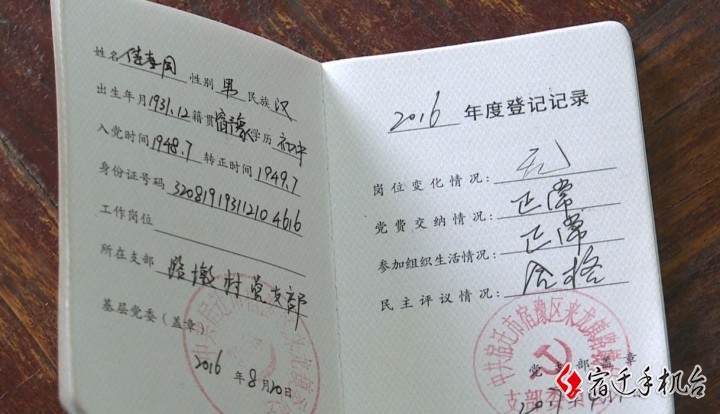 姓名 性别 男 民族 汉
出生年月 1931.12 籍贯 宿豫 学历 初中
入党时间 1948.7 转正时间 1949.7
身份证号码 320819193112104616
工作岗位
所在支部 路墩村党支部
基层党委（盖章）
2016 年 8 月 20 日
2016 年度登记记录
岗位变化情况： 无
党费交纳情况： 正常
参加组织生活情况： 正常
民主评议情况： 合格
中共宿迁市宿豫区来龙镇路
党 支 部 盖 章
支部委员
宿迁手机台